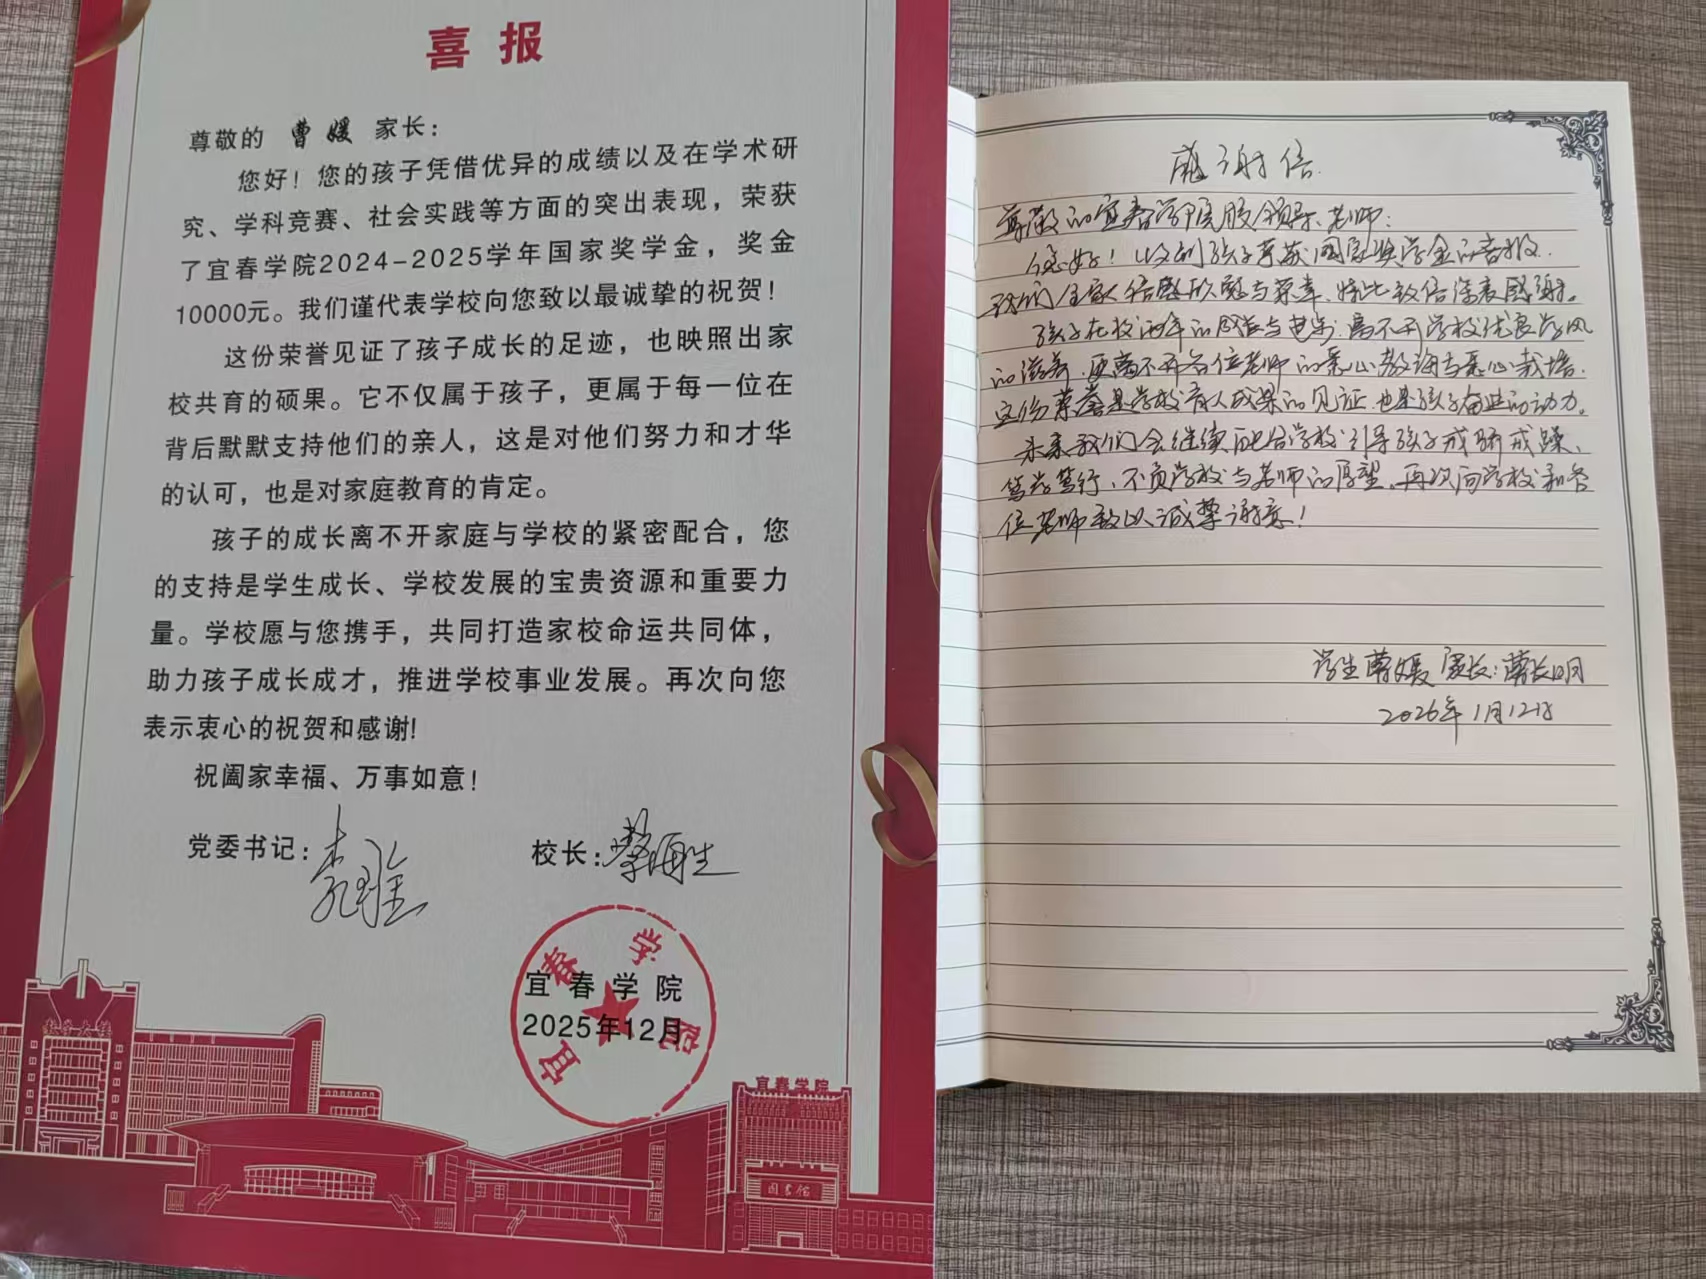 喜报
尊敬的 曹媛 家长：
您好！您的孩子凭借优异的成绩以及在学术研
究、学科竞赛、社会实践等方面的突出表现，荣获
了宜春学院2024-2025学年国家奖学金，奖金
10000元。我们谨代表学校向您致以最诚挚的祝贺！
这份荣誉见证了孩子成长的足迹，也映照出家
校共育的硕果。它不仅属于孩子，更属于每一位在
背后默默支持他们的亲人，这是对他们努力和才华
的认可，也是对家庭教育的肯定。
孩子的成长离不开家庭与学校的紧密配合，您
的支持是学生成长、学校发展的宝贵资源和重要力
量。学校愿与您携手，共同打造家校命运共同体，
助力孩子成长成才，推进学校事业发展。再次向您
表示衷心的祝贺和感谢！
祝阖家幸福、万事如意！
党委书记：
校长：
宜春学院
2025年12月
宜春学院
宜春学院
图书馆
感谢信
尊敬的宜春学院校领导、老师：
您好！收到孩子荣获国家奖学金的喜报，
我们全家人倍感欣慰与荣幸、特此致信深表感谢。
孩子在校两年的成长与进步，离不开学校优良学风
的滋养，更离不开各位老师的悉心教诲与悉心栽培，
这份荣誉是学校育人成果的见证，也是孩子奋进的动力。
未来我们会继续配合学校引导孩子戒骄戒躁、
笃学笃行，不负学校与老师的厚望，再次向学校和各
位老师致以诚挚谢意！
学生曹媛 家长：曹长明
2026年1月12日